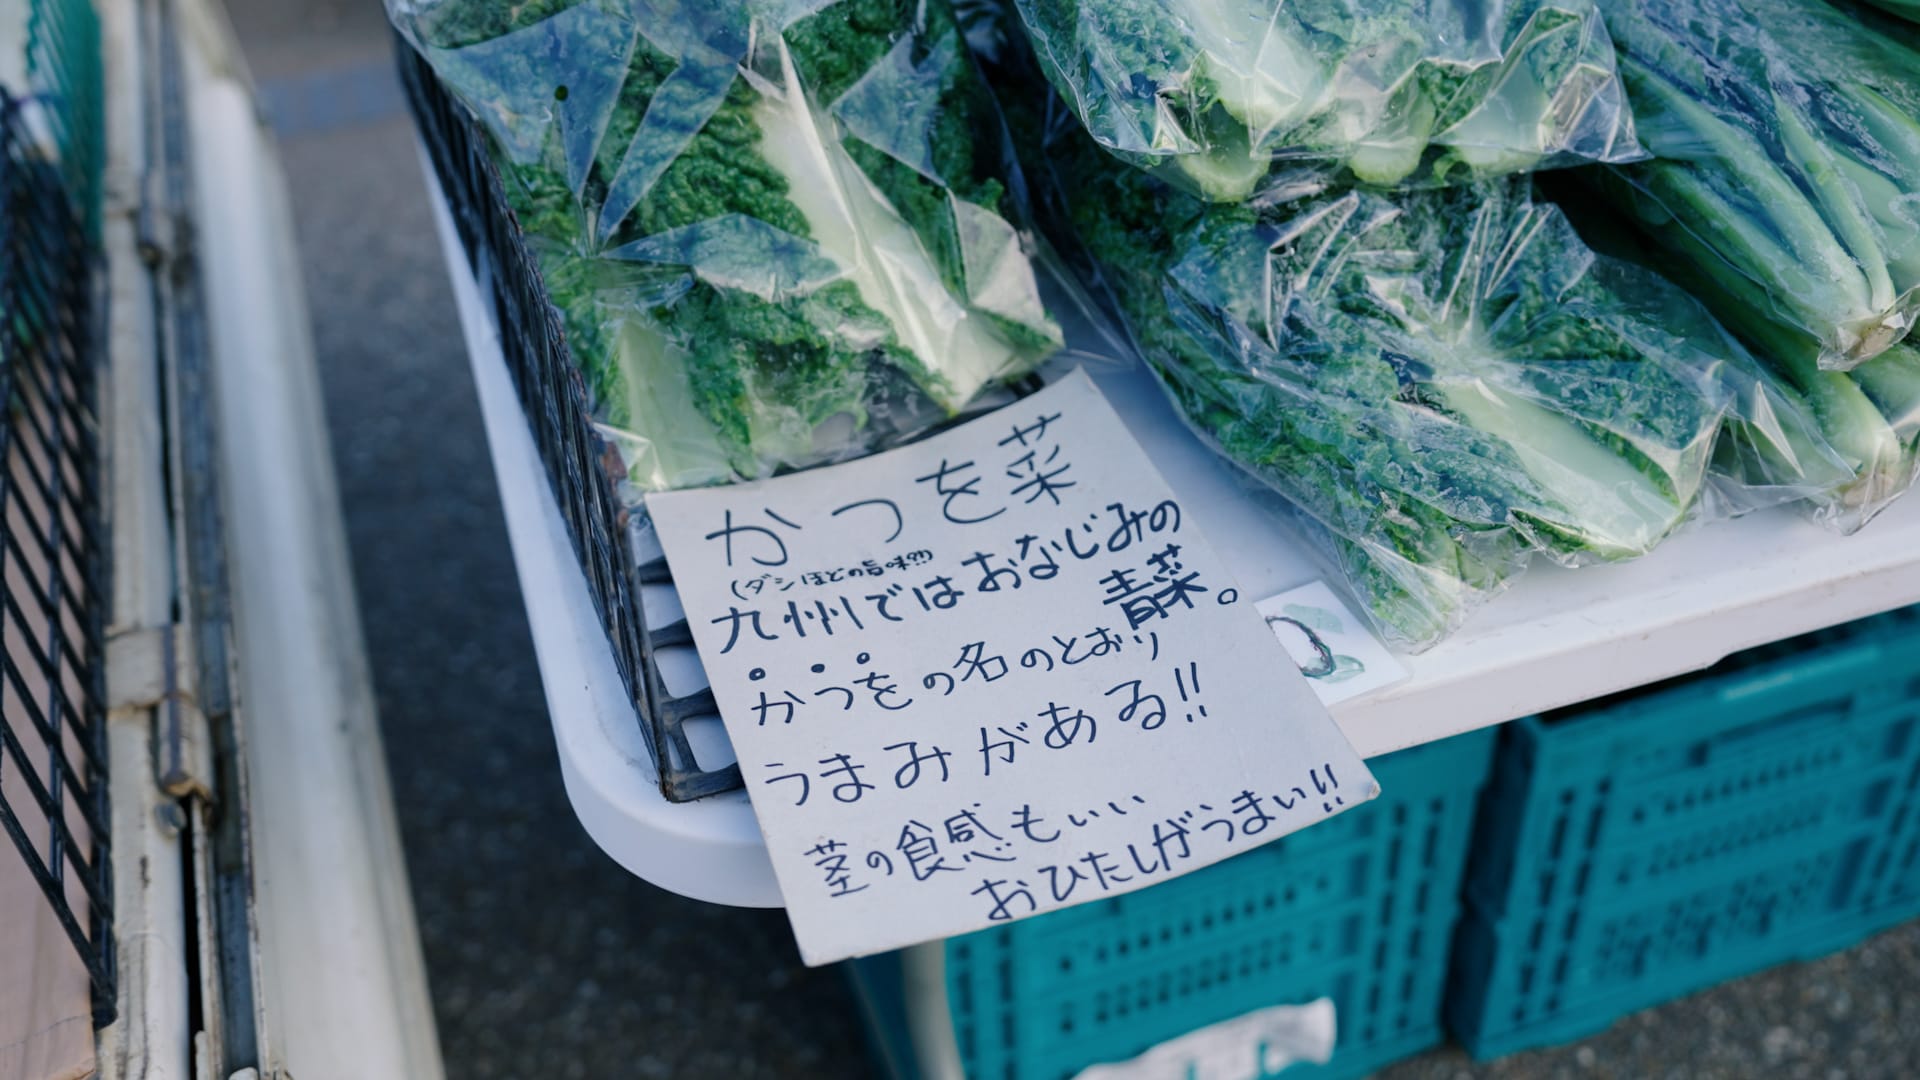 かつを菜
(ダシほどの旨味!?!)
九州ではおなじみの
青菜。
かつをの名のとおり
うまみがある!!
茎の食感もいい
おひたしがうまい!!